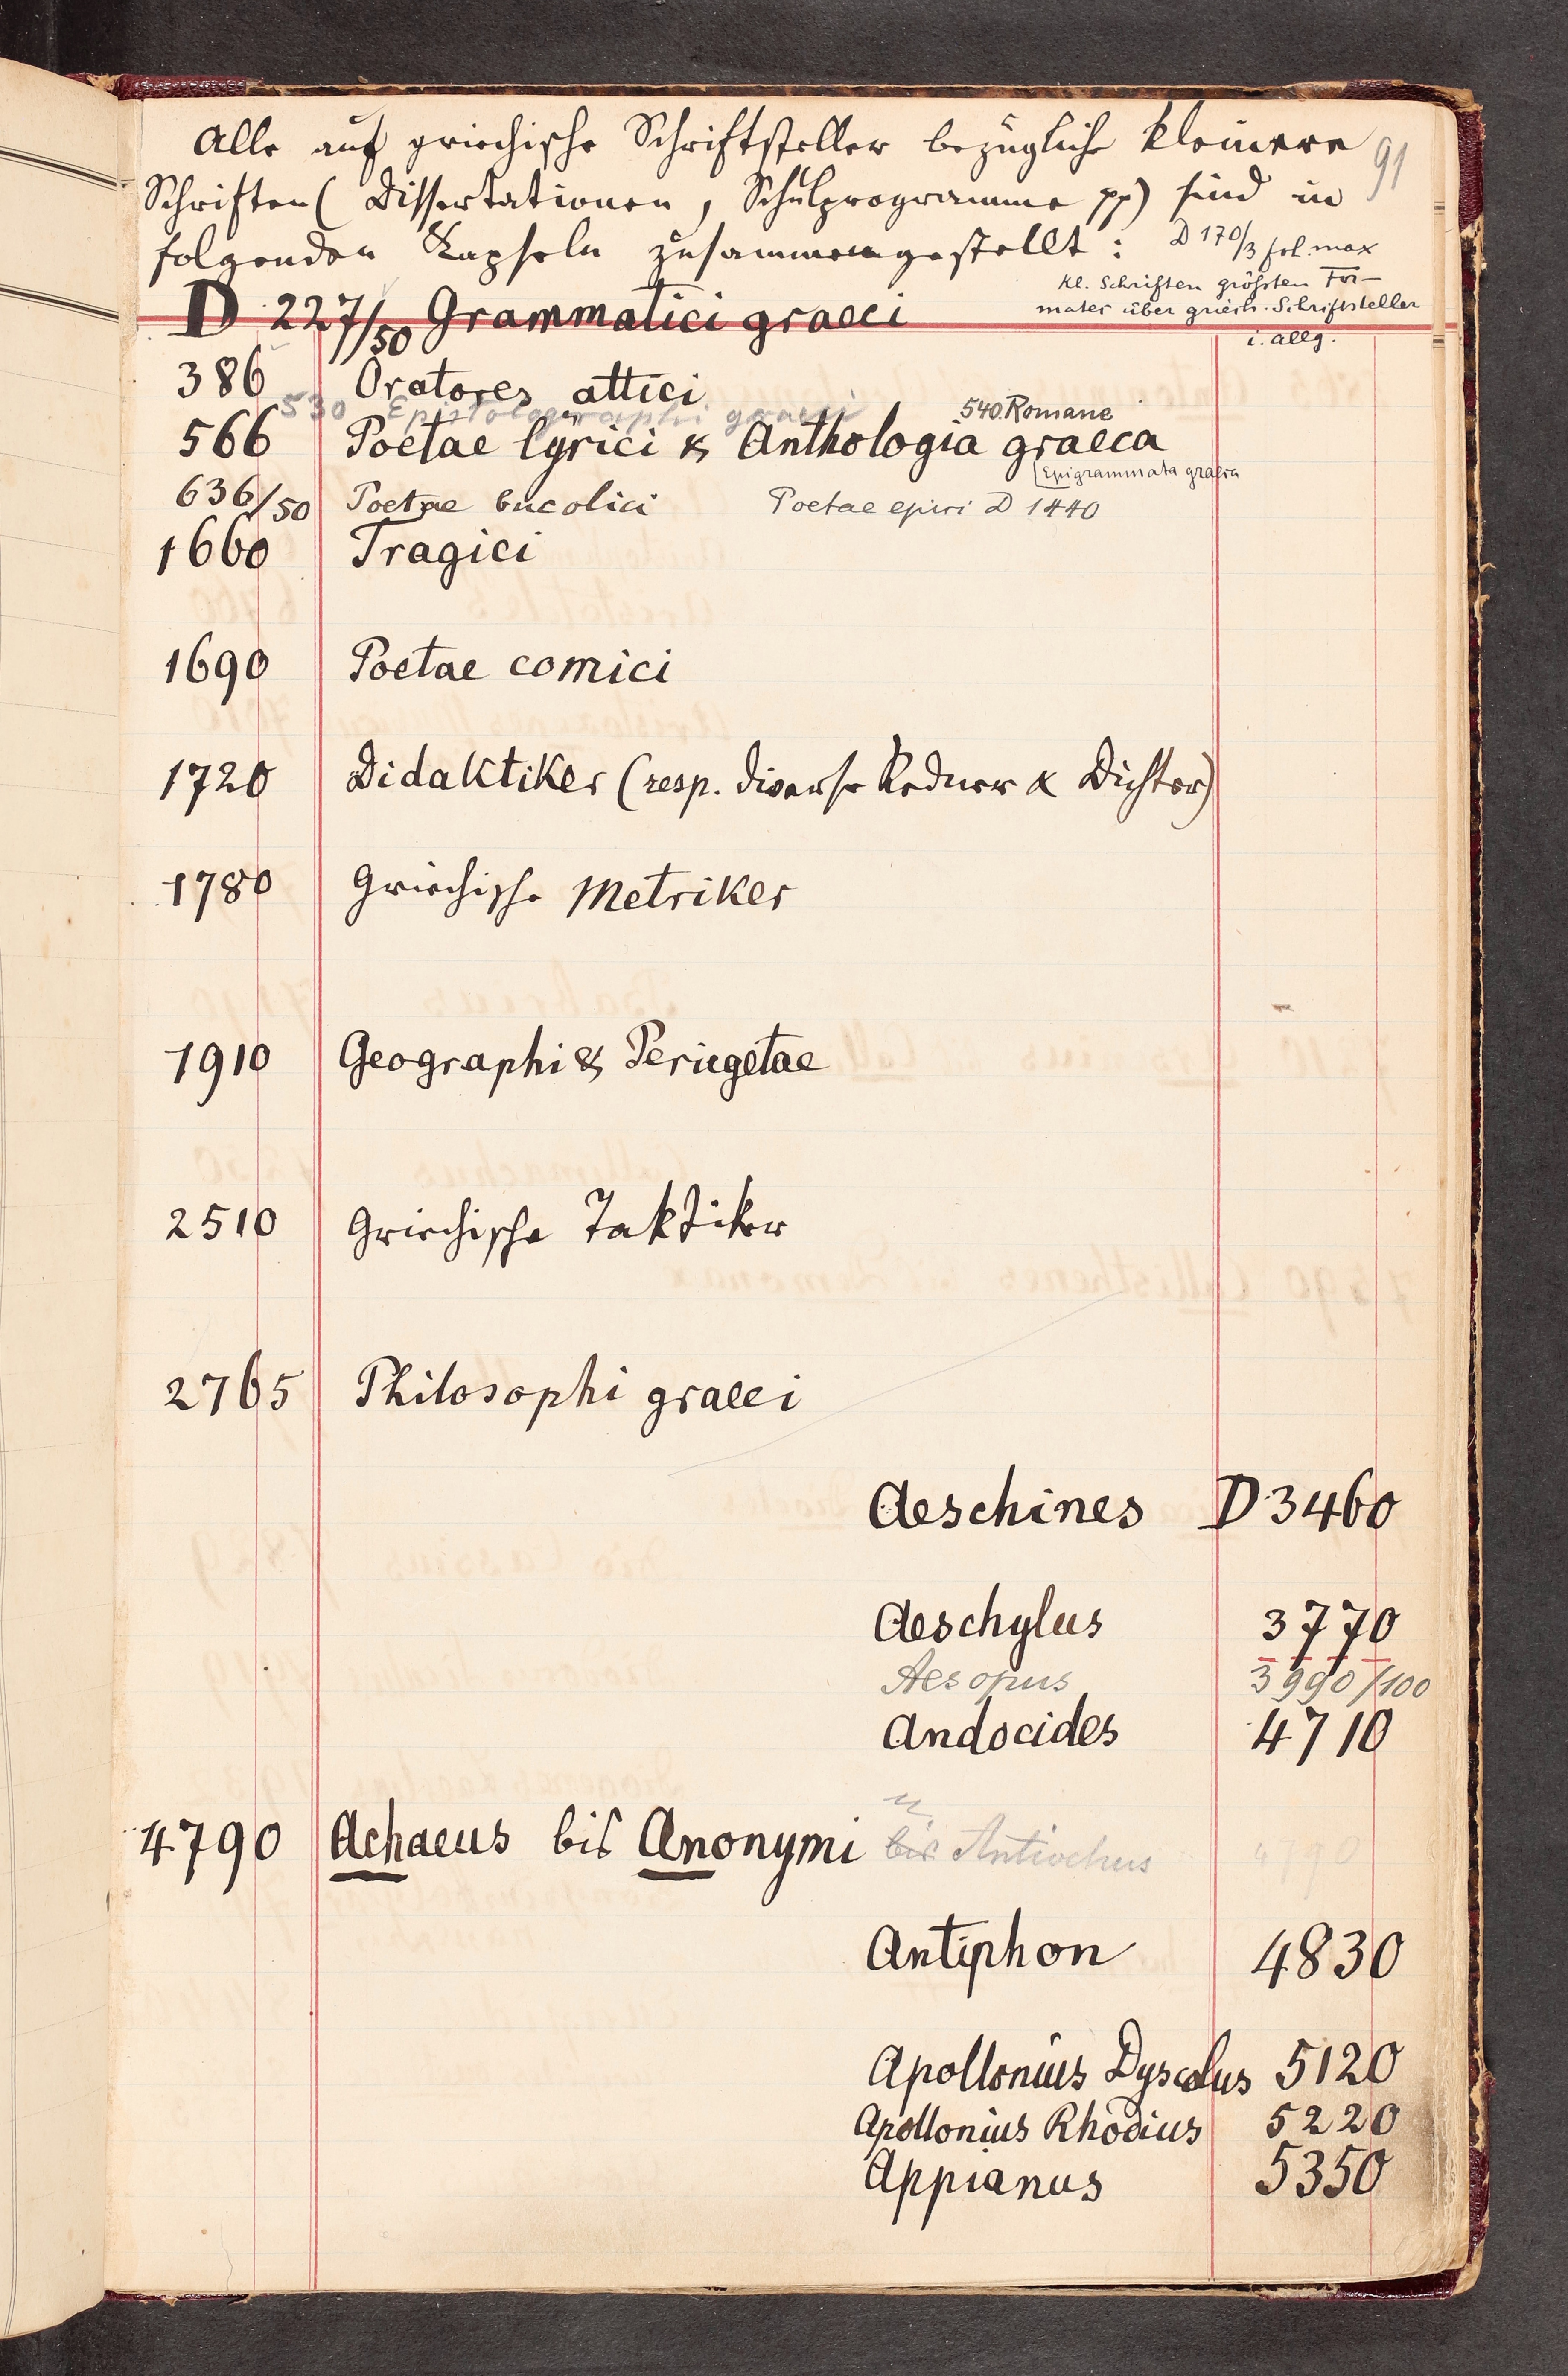 91
Alle auf griechische Schriftsteller bezügliche kleinere
Schriften (Dissertationen, Schulprogramme pp) sind in
folgenden Kapseln zusammengestellt :
D 170/3 fol. max
Kl. Schriften grössten For-
mates über griech. Schriftsteller
i. allg.
D 227/50 Grammatici graeci
386 Oratores attici
530 Epistolographi graeci
540 Romane
566 Poetae lyrici & Anthologia graeca
(Epigrammata graeca
636/50 Poetae bucolici Poetae epici D 1440
1660 Tragici
1690 Poetae comici
1720 Didaktiker (resp. diverse Redner & Dichter)
1780 Griechische Metriker
1910 Geographi & Periegetae
2510 Griechische Taktiker
2765 Philosophi graeci
Aeschines D 3460
Aeschylus 3770
Aesopus 3990/100
Andocides 4710
u
4790 Achaeus bis Anonymi bis Antiochus 4790
Antiphon 4830
Apollonius Dyscolus 5120
Apollonius Rhodius 5220
Appianus 5350